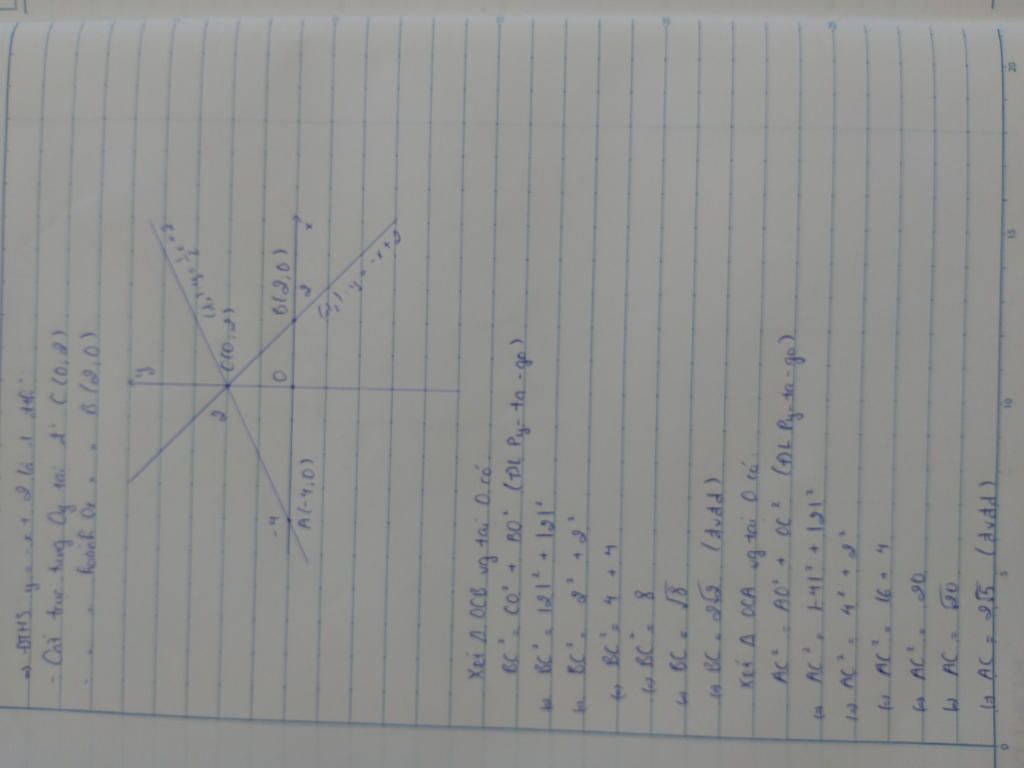 ⇒ ĐTHS y = -x + 2 là 1 đt:
- Cắt trục tung Oy tại đ' C (0, 2)
- " " hoành Ox " " B (2, 0)
y
(d): y = ½x + 2
2
C(0, 2)
-4
A(-4, 0)
O
B(2, 0)
2
x
y = -x + 2
Xét Δ OCB vg tại O có
BC² = CO² + BO² (ĐL Py-ta-go)
(=) BC² = |2|² + |2|²
(=) BC² = 2² + 2²
(=) BC² = 4 + 4
(=) BC² = 8
(=) BC = √8
(=) BC = 2√2 (đvđd)
Xét Δ OCA vg tại O có
AC² = AO² + OC² (ĐL Py-ta-go)
(=) AC² = |-4|² + |2|²
(=) AC² = 4² + 2²
(=) AC² = 16 + 4
(=) AC² = 20
(=) AC = √20
(=) AC = 2√5 (đvđd)
0 5 10 15 20